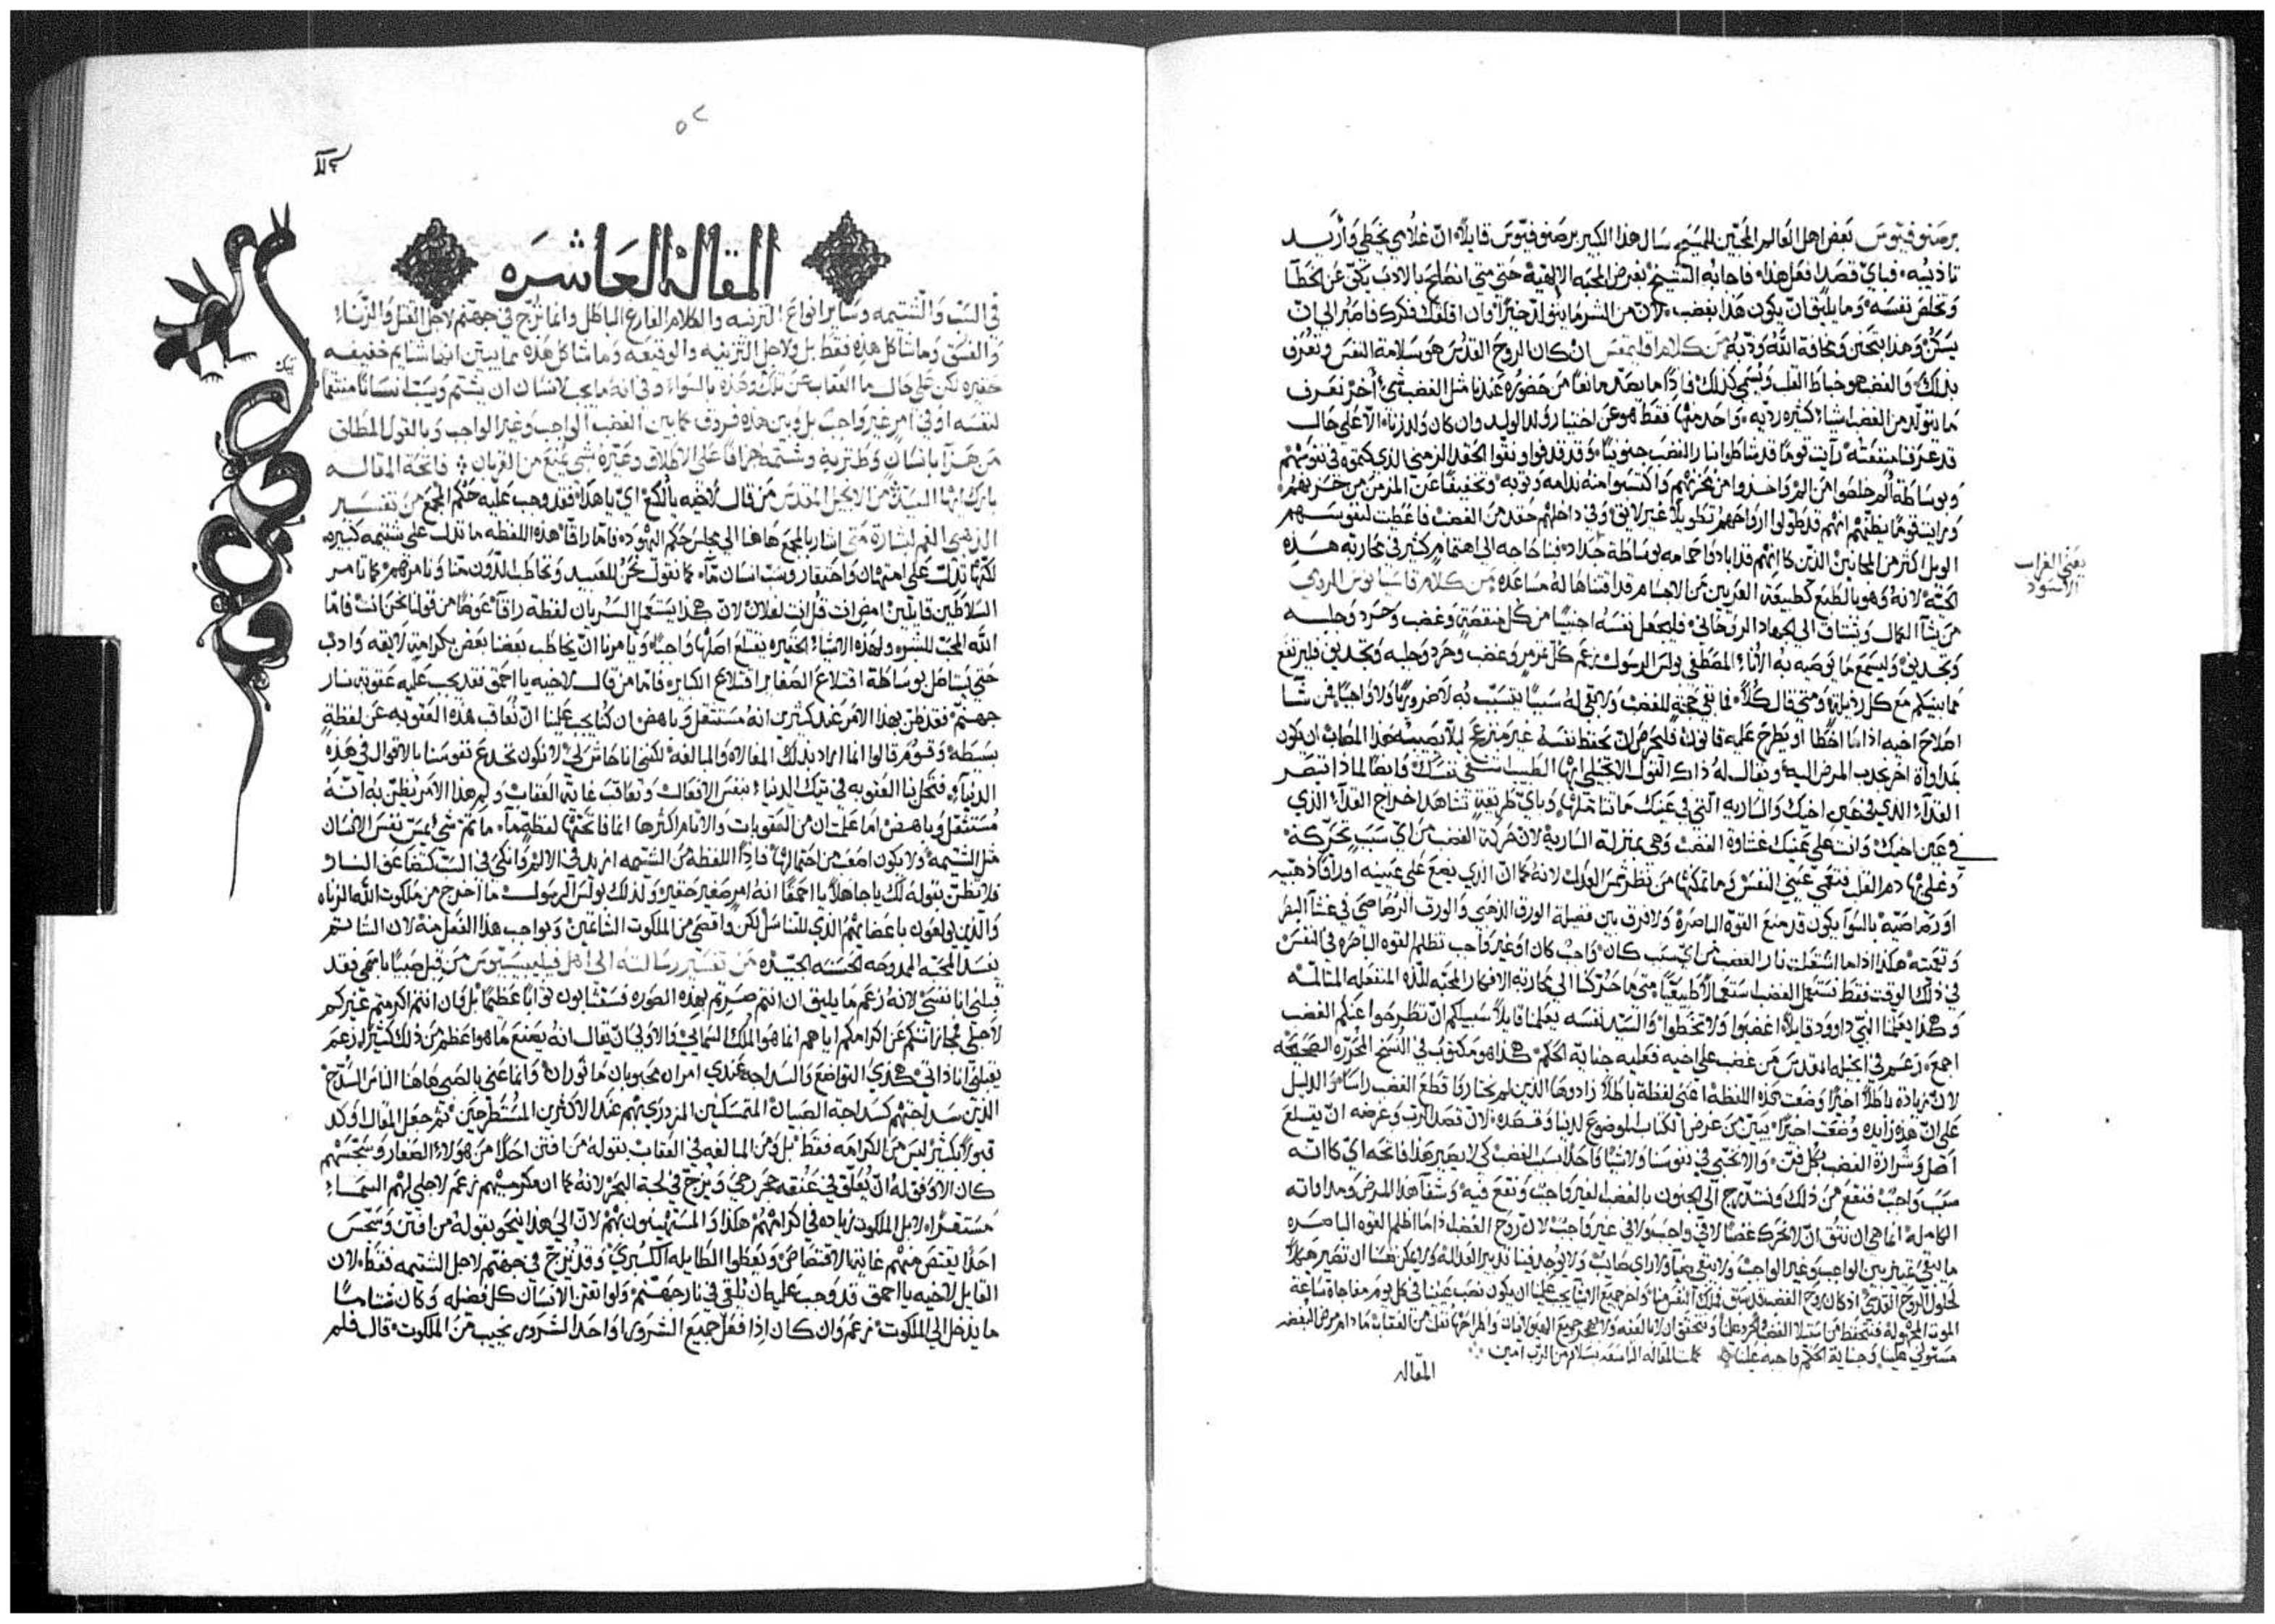 برصنوفيوس بعض اهل العالم المحبين للمسيح سال هذا الكبير برصنوفيوس قايلاً ان غلامي يخطي واريد
تاذيبه فباي قصد افعل هذا فاجابه الشيخ بغرض المحبة الالهية حتي متي انصلح بالادب يكف عن الخطا
ويخلص نفسه وما يليق ان يكون هذا بغضب لان من الشر ما يتولد خيراً وان اقلقك فكرك فاصبر الي ان
يسكن وهذا بتحنن ومخافة الله ودبه من كلام اقليمقس ان كان الروح القدس هو سلامة النفس وتعرف
بذلك والغضب هو خباط القلب ويسمي كذلك فاذا ما يصد مانعاً من حضوره عندنا مثل الغضب شي اخر نعرف
ما يتولد من الغضب اشيا كثيره رديه واحد منها فقط هو عن اختيار ردي لذا الولد وان كان ولد زنا الا علي حال
قد عرفنا منفعته رايت قوماً قد شاطوا بنار الغضب جنونياً وقد قذفوا ونقوا الحقد المزمن الذي كتموه في نفوسهم
وبوساطة الم خلصوا من الم واخذوا من محزنهم واكتسبوا منه ندامه وتوبه وتحقيقاً عن المزمن من حزنهم
ورايت قوماً يظنهم انهم قد طولوا ارواحهم تطويلاً غير لايق وفي داخلهم حقد من الغضب فاعطيت لنفوسهم
الويل اكثر من المجانين الذين كانهم قد ابادوا حمامه بوساطة سواد بنا حاجه الي اهتمام كثير في محاربه هذه
الحيه لانه وهو بالطبع كطبيعة الغريبين عن الاجسام قد اقتناها له مساعده من كلام قاسيانوس الروي
من يشا الكمال ويشتاق الي الجهاد الروحاني فليجعل نفسه اجنبياً من كل منقصة وغضب وحرد وجلبه
وتجديف وليسمع ما يوصيه به الاناء المصطفي بولس الرسول زعم كل تمرمر وغضب وحرد وجلبه وتجديف فليرتفع
مما بينكم مع كل رذيله ومتي قال كل فما بقي حجة للغضب ولا بقي له سبباً يتسبب به لا ضرورياً ولا واجباً فمن شا
اصلاح اخيه اذا ما اخطا او يطرح عليه قانون فليحرص ان يحفظ نفسه غير منزعج ليلا يصيبه هذا المصاب ان يكون
بمداواة اخر يجذب المرض اليه ويقال له ذاك القول الانجيلي ايها الطبيب تشفي نفسك وايضاً لماذا تبصر
القذا الذي في عين اخيك والساريه التي في عينك ما تتاملها وباي طريقة تشاهد اخراج القذا الذي
في عين اخيك وانت علي عينك غشاوة الغضب وهي بمنزلة السارية لان حركة الغضب من اي سبب تحركه
وغلي بها دم القلب فتعمي عيني النفس وما تمكنها من نظر شمس العدل لانه كما ان الذي يضع علي عينيه اوراقاً ذهبيه
او رصاصيه بالسوا يكون قد منع القوه الباصره ولا فرق بين فضيلة الورق الذهبي والورق الرصاصي في غشا البصر
وتعميته هكذا اذا ما اشتعلت نار الغضب من اي سبب كان واجب كان او غير واجب تظلم القوه الباصره في النفس
في ذلك الوقت فقط نستعمل الغضب استعمالاً طبيعياً متي ما حركنا الي محاربة الافكار المحبه للذه المنفعله المتالمه
وهكذا يعلمنا النبي داوود قايلاً اغضبوا ولا تخطوا والسيد نفسه يعلمنا قايلاً سبيلكم ان تطرحوا عنكم الغضب
اجمع زعم في انجيله المقدس من غضب علي اخيه فعليه جناية الحكم هكذا هو مكتوب في النسخ المحرره الصحيحه
لان زيادة باطلاً اخيراً وضعت هذه اللفظه اعني لفظة باطلاً زادوها الذين لم يختاروا قطع الغضب راساً والدليل
علي ان هذه زايده وضعت اخيراً يتبين من غرض الكتاب الموضوع لدينا وقصده لان قصد الرب وغرضه ان يقتلع
اصل وشرارة الغضب بكل فن ولا نخبي في نفوسنا ولا شياً واحداً سبب الغضب كي لا يصير هذا فاتحه اي كانه
سبب واجب فنقع من ذلك ونستدرج الي الجنون بالغضب لغير واجب ونقع فيه وشفا هذا المرض ومداواته
الكامله انما هي ان نتيقن ان لا نحرك غضباً لا في واجب ولا في غير واجب لان روح الغضب اذا ما اظلم القوه الباصره
ما يبقي تمييز بين الواجب وغير الواجب ولا يبقي ضياً ولا راي صايب ولا يوجد فينا تدبير العداله ولا يمكن نفسنا ان تصير هيكلاً
لحلول الروح القدس اذ كان روح الغضب قد سبق فملك النفس منا واخر جميع الاشيا يجب علينا ان يكون نصب عيننا في كل يوم مفاجاة ساعة
الموت المجهوله فنتحفظ من استيلا الغضب والحرد علينا ونتحقق ان لا بالعفه ولا بهجر جميع الهيولانيات واطراحها نفلت من العقاب ما دام مرض البغض
مستولي علينا وجناية الحكم واجبه علينا كملت المقاله التاسعه بسلام من الرب امين
المقاله
يعني الغراب
الاسود
٥٢
المقالة العاشره
في السب والشتيمه وساير انواع التزنيه والكلام الفارغ الباطل وانما نزج في جهنم لاجل القتل والزناء
والفسق وما شاكل هذه فقط بل ولاجل التزنيه والوقيعه وما شاكل هذه مما يبين انها شتايم خفيفه
حقيره لكن علي حال ما العقاب عن تلك وهذه بالسواء وفي انه ما يجب لانسان ان يشتم ويسب انساناً منتقماً
لنفسه او في امر غير واجب بل وبين هذه فروق كما بين الغضب الواجب وغير الواجب وبالقول المطلق
من هزا بانسان وطنز به وشتمه جزافاً علي الاطلاق وعيره بشي يمنع من القربان فاتحة المقاله
بارك ايها السيد من الانجيل المقدس من قال لاخيه يا لكع اي يا هذا فقد وجب عليه حكم المجمع من تفسير
الذهبي الفم لبشارة متي اشار بالمجمع هاهنا الي مجلس حكم اليهود فاما راقا هذه اللفظه ما تدل علي شتيمه كبيره
لكنها تدل علي امتهان واحتقار وسب انسان ما كما نقول نحن للعبيد ونخاطب للدون منا ونامرهم كما نامر
السلاطين قايلين امض انت قل انت لفلان لان هكذا يستعمل السريان لفظة راقا عوضاً من قولنا نحن انت فاما
الله المحب للبشر ولهذه الاشياء الحقيره يقتلع اصلها واجباً ويامرنا ان يخاطب بعضنا بعض بكرامة لايقه وادب
حتي يستاصل بوساطة اقتلاع الصغاير اقتلاع الكباير فاما من قال لاخيه يا احمق فقد يجب عليه عقوبة نار
جهنم فقد ظن بهذا الامر عند كثيرين انه مستثقل وباهض ان كنا يجب علينا ان نعاقب هذه العقوبه عن لفظة
بسيطه وقوم قالوا انما اراد بذلك المغالاه والمبالغه لكنني انا خاش لي لا نكون نخدع نفوسنا بالاقوال في هذه
الدنيا فتحل بنا العقوبه في تيك الدنيا بنفس الافعال ونعاقب غاية العقاب ولم هذا الامر يظن به انه
مستثقل وباهض اما علمت ان من العقوبات والاثام اكثرها انما فاتحتها لفظة ما ما ثم شي يمس نفس الانسان
مثل الشتيمه ولا يكون اصعب من احتمالها فاذا اللفظه من الشتيمه ازيد في الالم وانكي في السب كتضاعف النار
فلا تظن بقوله لك يا جاهلاً يا احمقاً انه امر صغير حقير ولذلك بولس الرسول ما اخرج من ملكوت الله الزناه
والذين يولعون باعضايهم الذي للتناسل لكن واقصي من الملكوت الشاتمين وبواجب هذا الفعل منه لان الشاتم
يفسد المحبه الممدوحه الحسنه الجيده من تفسير رسالته الي اهل فيليبسيوس من قبل صبياً باسمي فقد
قبلني انا نفسي لانه زعم ما يليق ان انتم صرتم بهذه الصوره فستثابون ثواباً عظيماً بل وان انتم اكرمتم غيركم
لاجلي مجازاتكم عن اكرامكم اياهم انما هو الملك السمايي والاولي ان يقال انه يصنع ما هو اعظم من ذلك كثيراً زعم
يقبلني انا ذاتي هكذي التواضع والسذاجه عندي امران محبوبان ماثوران وانما عني بالصبي هاهنا الناس السذج
الذين سذاجتهم كسذاجة الصبيان المتمسكنين المزدري بهم عند الاكثرين المستطرحين ثم جعل المقال اوكد
قبولاً كثير ليس من الكرامه فقط بل ومن المبالغه في العقاب بقوله من افتن احداً من هولاء الصغار وسجسهم
كان الاوفق له ان يعلق في عنقه حجر رحي ويزج في لجة البحر لانه كما ان مكرميهم زعم لاجلي لهم السماء
مستقراً لا بل الملكوت زياده في كرامتهم هكذا والمستهينون بهم لان الي هذا ينحو بقوله من افتن وسجس
احداً يقتص منهم غاية الاقتصاص ويعطوا الطايله الكبري وقد نزج في جهنم لاجل الشتيمه فقط لان
القايل لاخيه يا احمق قد وجب عليه ان يلقي في نار جهنم ولو اتقن الانسان كل فضله وكان شتاماً
ما يدخل الي الملكوت زعم وان كان اذا فعل جميع الشرور واحد الشرور يخيب من الملكوت قال فلم